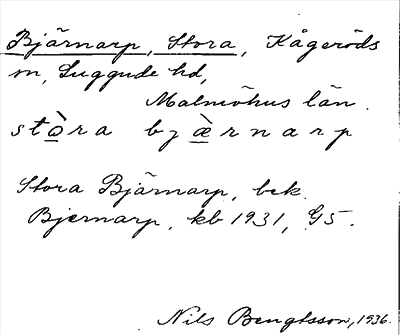 Bjärnarp, Stora, Kågeröds
sn, Luggude hd,
Malmöhus län.
stò̲ra bjæ̲̀rnarp
Stora Bjärnarp, bek.
Bjernarp, kb 1931, G5.
Nils Bengtsson, 1936.